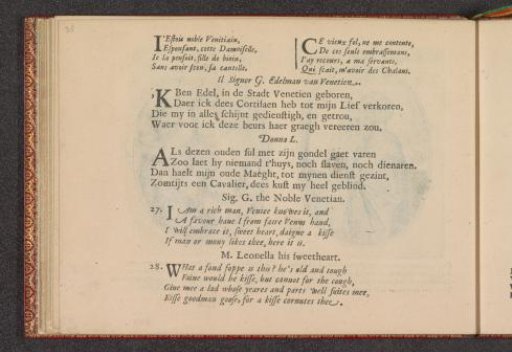 J'Estoie noble Venitiain,
Espousant, cette Damoiselle,
Je la pensoit, fille de biein,
Sans avoir sceu, sa cautelle.
CE vieux fol, ne me contente,
De ces seule embrassemans,
J'ay recours, a ma servante,
Qui sçait, m'avoir des Chalans.
Il Signor G. Edelman van Venetien.
'K Ben Edel, in de Stadt Venetien geboren,
Daer ick dees Cortisaen heb tot mijn Lief verkoren,
Die my in alles schijnt gedienstigh, en getrou,
Waer voor ick deze beurs haer graegh vereeren zou.
Donna L.
ALs dezen ouden sul met zijn gondel gaet varen
Zoo laet hy niemand t'huys, noch slaven, noch dienaren.
Dan haelt mijn oude Maeght, tot mynen dienst gezint,
Zomtijts een Cavalier, dees kust my heel geblind.
Sig. G. the Noble Venetian.
27. I Am a rich man, Venice knowes it, and
A favour have I from faire Venus hand,
I will embrace it, sweet heart, daigne a kisse
If man or mony likes thee, here it is.
M. Leonella his sweetheart.
28. WHat a fond foppe is this? he's old and tough
Faine would he kisse, but cannot for the cough,
Give mee a lad whose yeares and parts well suites mee,
Kisse goodman goose, for a kisse cornutes thee.